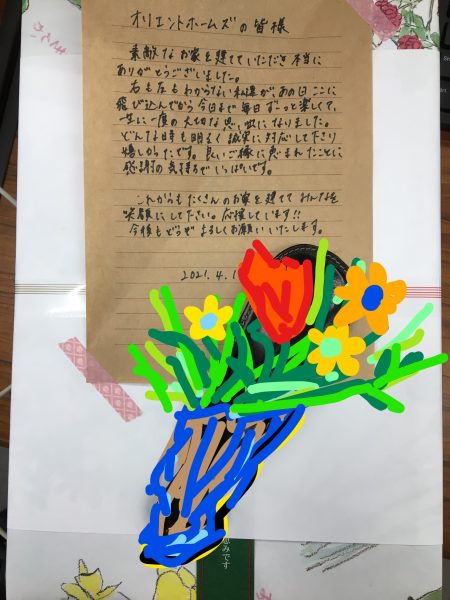 オリエントホームズの皆様
素敵なお家を建てていただき本当に
ありがとうございました。
右も左もわからない私達が、あの日ここに
飛び込んでから今日まで毎日ずっと楽しくて、
一生に一度の大切な思い出になりました。
どんな時も明るく誠実に対応して下さり
嬉しかったです。良いご縁に恵まれたことに
感謝の気持ちでいっぱいです。
これからもたくさんのお家を建てて みんなを
笑顔にして下さい。応援しています!!
今後もどうぞよろしくお願いいたします。
2021.4.1
みです